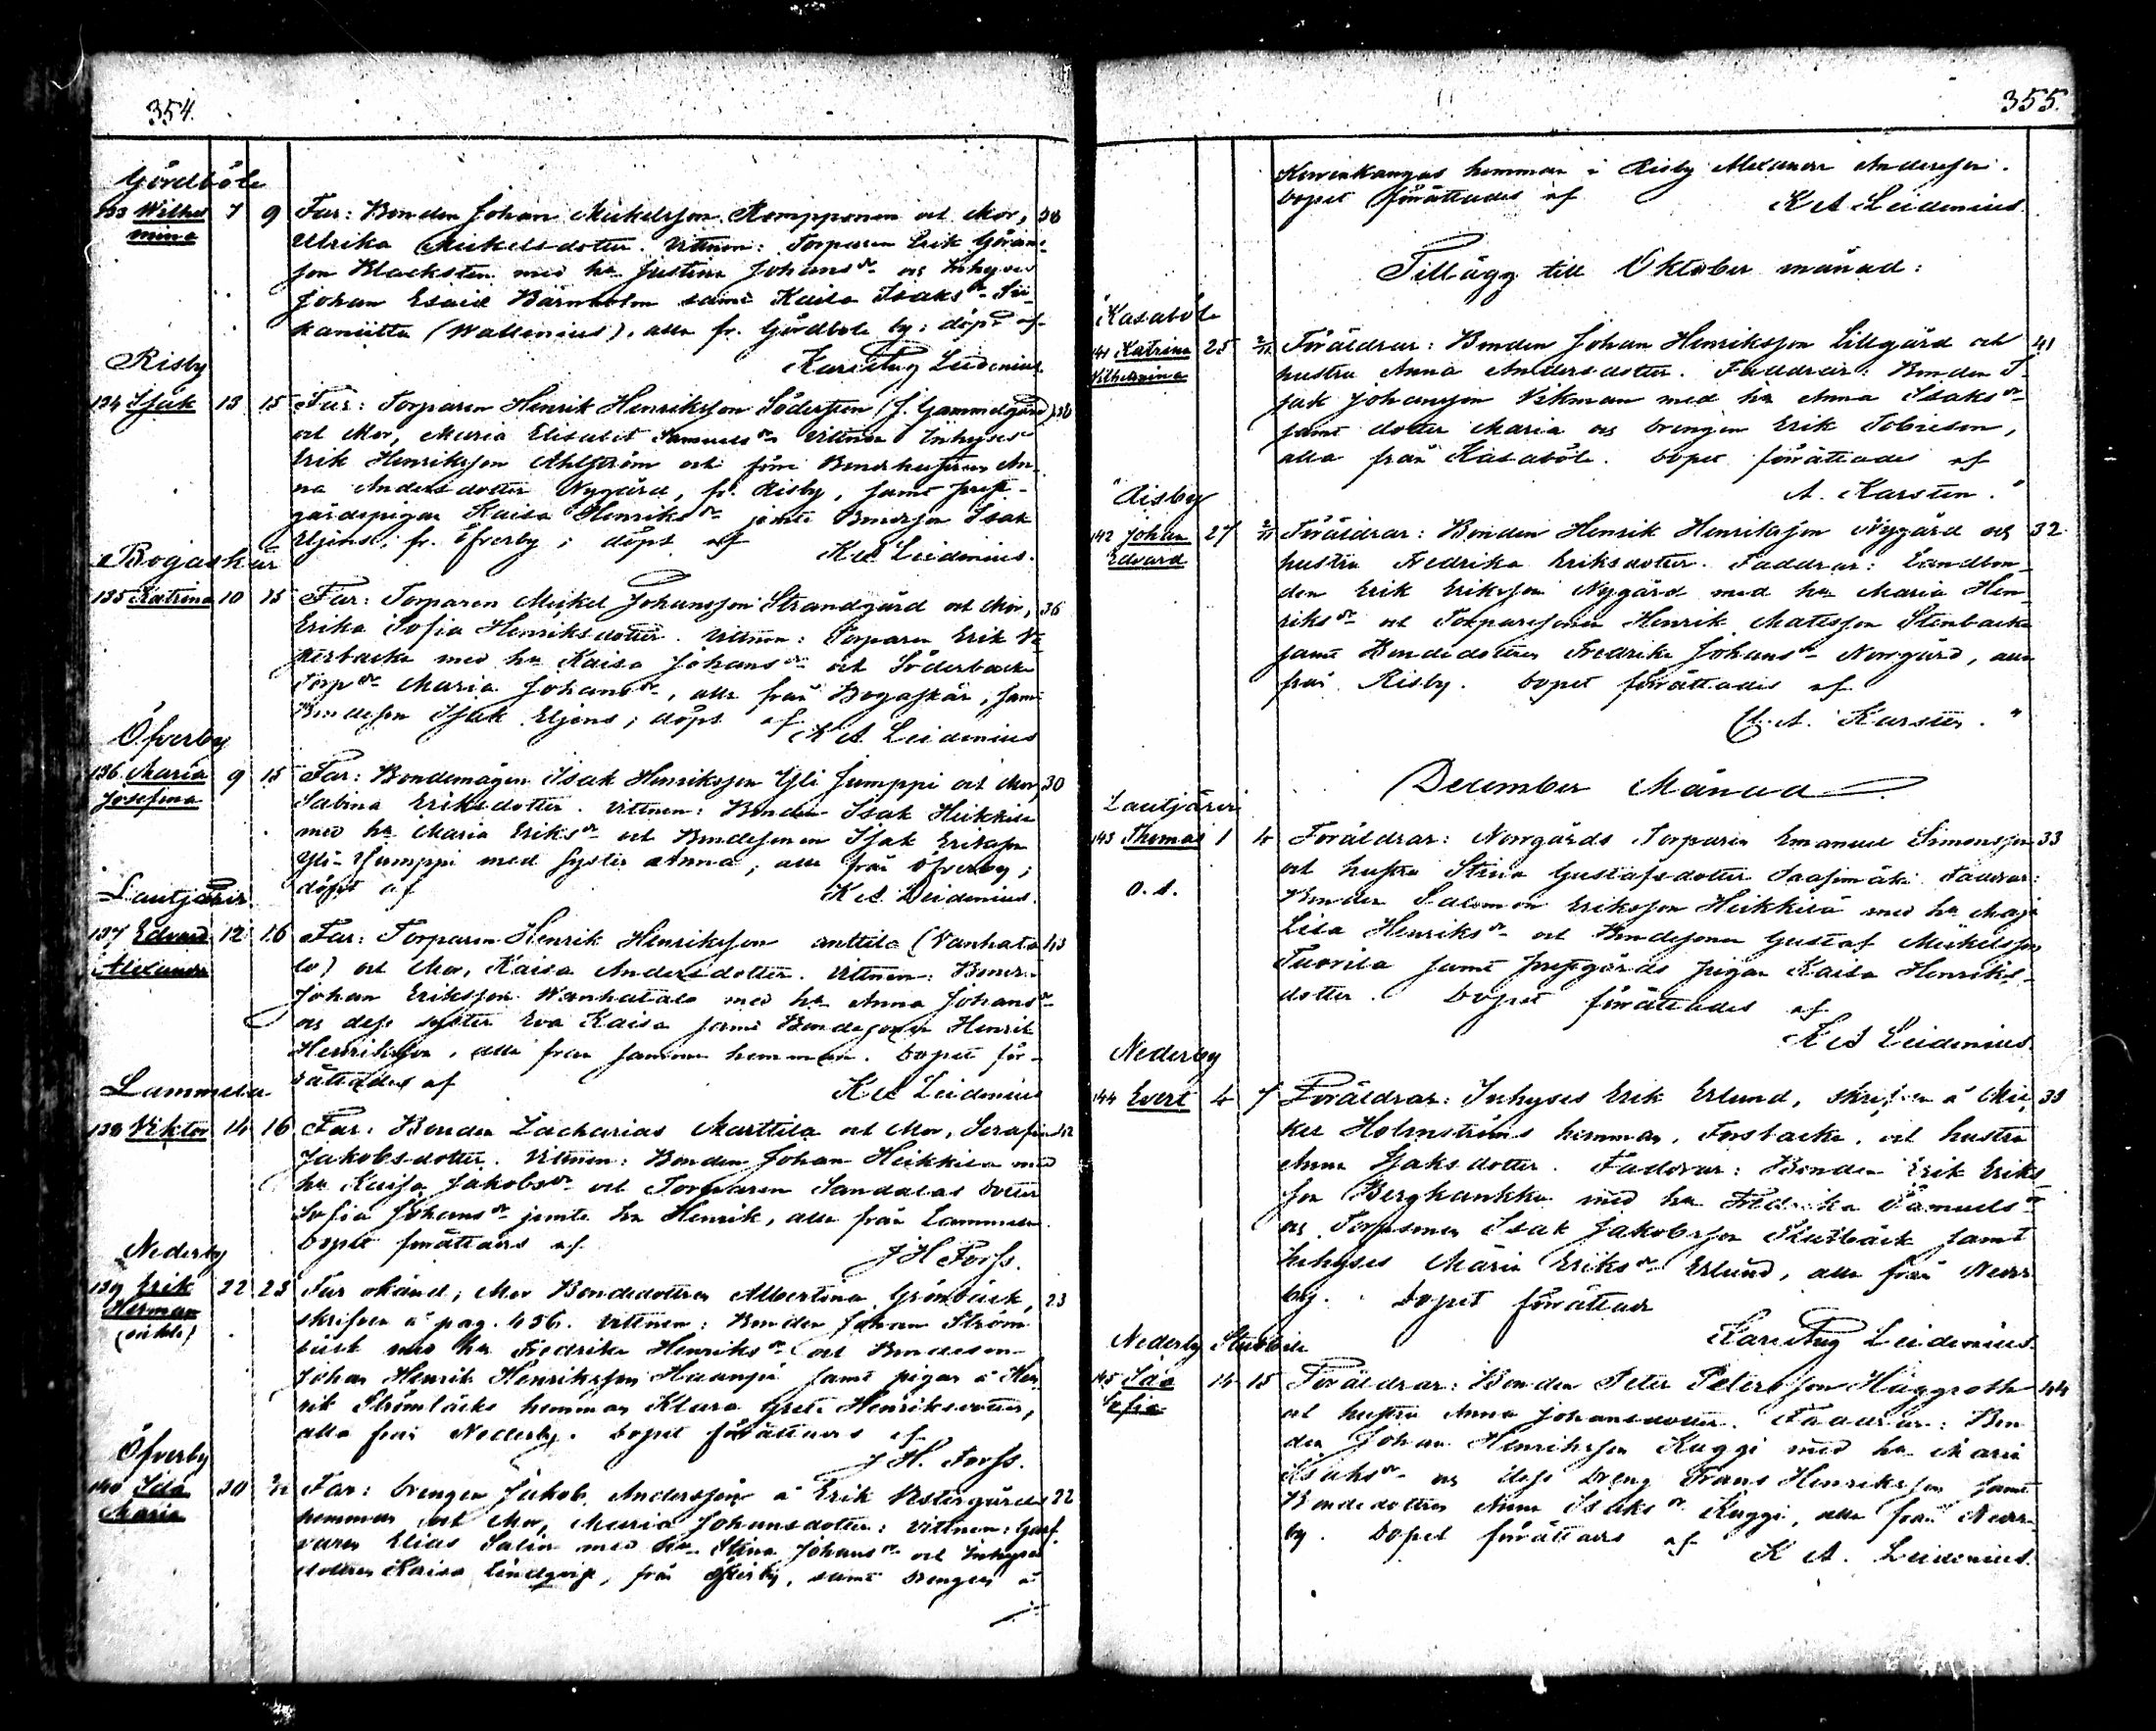 354.
Gördböle
133 Wilhel 7 9 Far: Bonden Johan Mickelsson Kempponen och Mor, 38
mina Ulrika Mickelsdotter. Vittnen: Torparen Erik Göran-
son Klacksten med h. Justina Johansdr och Inhyses
Johan Esaid samt Kaisa Isaksdr Sii-
kaniitta (Wallenius), alla fr. Gördböle by; döpt af
Karl Aug Leidenius
Risby
134 Isak 13 15 Far: Torparen Henrik Henriksson (f. Gammelgård) 38
och Mor, Maria Elisabet Samuelsdr Vittnen Inhyses
Erik Henriksson Ahlström och förre Bondhustrun An-
na Andersdotter Nygård, fr. Risby, samt prest-
gårdspigan Kaisa Henriksdr jemte Bondeson Isak
Eljens, fr. Öfverby; döpt af K A Leidenius.
Bogaskär
135 Katrina 10 15 Far: Torparen Mickel Johansson Strandgård och Mor, 36
Erika Sofia Henriksdotter. Vittnen: Torparen Erik Ve-
sterbacka med h. Kaisa Johansdr och Söderbacka
Torpdr Maria Johansdr, alla från Bogaskär, samt
Bondeson Isak Eljens; döpt af K A Leidenius
Öfverby
136 Maria 9 15 Far: Bondemågen Isak Henriksson Yli Jumppi och Mor, 30
Josefina Sabina Eriksdotter. Vittnen: Bonden Isak Heikkilä
med h. Maria Eriksdr och Bondesonen Isak Eriksson
Yli-Jumppi med syster Anna; alla från Öfverby;
döpt af K A Leidenius.
Lautjärvi
137 Edvard 12 16 Far: Torparen Henrik Henriksson Anttila (Vanhata 43
Alexander lo) och Mor, Kaisa Andersdotter. Vittnen: Bonden
Johan Eriksson Wanhatalo med h. Anna Johansdr
och dess syster Eva Kaisa samt Bondesonen Henrik
Henriksson, alla från samma hemman. Dopet för-
rättades af K A Leidenius
Lammela
138 Viktor 14 16 Far: Bonden Zacharias Marttila och Mor, Serafina
Jakobsdotter. Vittnen: Bonden Johan Heikkilä med
h. Kaisa Jakobsdr och Torparen Sandalas dotter
Sofia Johansdr jemte br Henrik, alla från Lammela
Dopet förättades af J H Forss.
Nederby
139 Erik 22 23 Far okänd; Mor Bondedottren Albertina Grönbäck, 23
Herman skrifven å pag. 436. Vittnen: Bonden Johan Ström-
(oäkta) bäck med h. Fredrika Henriksdr och Bondeson
Johan Henrik Henriksson Haanpä samt pigan å Hen-
rik Strömbäcks hemman Klara Greta Henriksdotter,
alla från Nederby. Dopet förättades af
J H. Forss.
Öfverby
140 Ida 30 Far: Drengen Jakob Andersson å Erik Vestergårds 22
Maria hemman och Mor, Maria Johansdotter: Vittnen: Garf-
varen Elias Salin med h. Stina Johansdr och Inhyses
dottren Kaisa Lindqvist, från Öfverby, samt drengen å
355.
Kewenkangas hemman i Risby Alexander Andersson.
Dopet förättades af K A Leidenius.
Tillägg till Oktober månad:
"Kasaböle
141 Katrina 25 2/11 Föräldrar: Bonden Johan Henriksson Lillgård och 41
Vilhelmina hustru Anna Andersdotter. Faddrar: Bonden I-
sak Johansson Vikman med h. Anna Isaksdr
samt dotter Maria och Drengen Erik Tobieson,
alla från Kasaböle. Dopet förättades af
A. Karsten."
"Risby
142 Johan 27 2/11 Föräldrar: Bonden Henrik Henriksson Nygård och 32
Edvard hustru Fredrika Eriksdotter. Faddrar: Landbon-
den Erik Eriksson Nygård med h. Maria Hen-
riksdr och Torparesonen Henrik Matsson Stenbacka
samt Bondedottren Fredrika Johansdr Norrgård, alla
från Risby. Dopet förättades af
A. Karsten."
December Månad
Lautjärvi
143 Thomas 1 4 Föräldrar: Norrgårds Torparen Emanuel Simonsson 33
och hustru Stina Gustafsdotter Saasimäki. Faddrar:
O.A. Bonden Salomon Eriksson Heikkilä med h. Maja
Lisa Henriksdr och Bondesonen Gustaf Mickelsson
Tuorila samt prestgårds pigan Kaisa Henriks-
dotter. Dopet förättades af
K A Leidenius.
Nederby
144 Evert 4 7 Föräldrar: Inhyses Erik Erlund, skrifven å Mic- 33
kel Holmströms hemman, Furubacka, och hustru
Anna Isaksdotter. Faddrar: Bonden Erik Eriks-
son Bergkankka med h. Fredrika Samuelsdr
och Torparesonen Isak Jakobsson Slutbäck samt
Inhyses Maria Eriksdr Erlund, alla från Neder-
by. Dopet förättade
Karl Aug Leidenius.
Nederby
145 Ida 14 15 Föräldrar: Bonden Peter Petersson Häggroth 44
Sofia och hustru Anna Johansdotter. Faddrar: Bon-
den Johan Henriksson Kuggi med h. Maria
Isaksdr och dess Dreng Frans Henriksson samt
Bondedottren Anna Isaksdr Kuggi, alla från Neder-
by. Dopet förättades af K A. Leidenius.